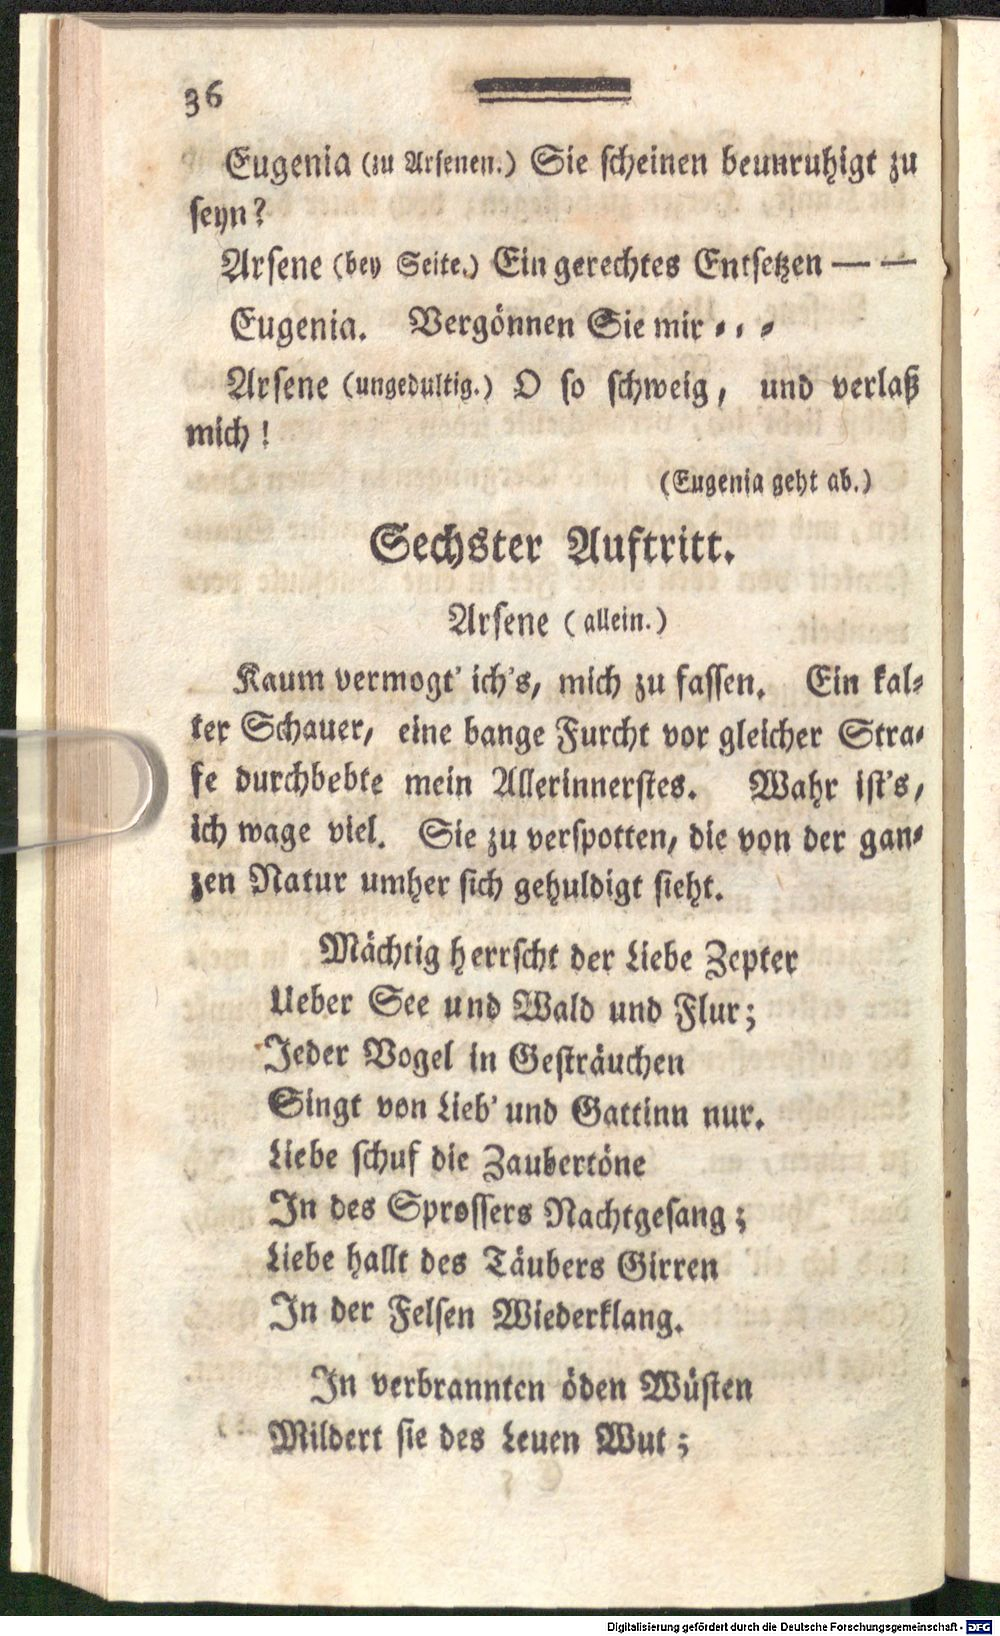 36
Eugenia (zu Arsenen.) Sie scheinen beunruhigt zu
seyn?
Arsene (bey Seite.) Ein gerechtes Entsetzen — —
Eugenia. Vergönnen Sie mir ⸗ ⸗ ⸗
Arsene (ungedultig.) O so schweig, und verlaß
mich!
(Eugenia geht ab.)
Sechster Auftritt.
Arsene (allein.)
Kaum vermogt' ich's, mich zu fassen. Ein kal⸗
ter Schauer, eine bange Furcht vor gleicher Stra⸗
fe durchbebte mein Allerinnerstes. Wahr ist's,
ich wage viel. Sie zu verspotten, die von der gan⸗
zen Natur umher sich gehuldigt sieht.
Mächtig herrscht der Liebe Zepter
Ueber See und Wald und Flur;
Jeder Vogel in Gesträuchen
Singt von Lieb' und Gattinn nur.
Liebe schuf die Zaubertöne
In des Sprossers Nachtgesang;
Liebe hallt des Täubers Girren
In der Felsen Wiederklang.
In verbrannten öden Wüsten
Mildert sie des Leuen Wut;
Digitalisierung gefördert durch die Deutsche Forschungsgemeinschaft - DFG